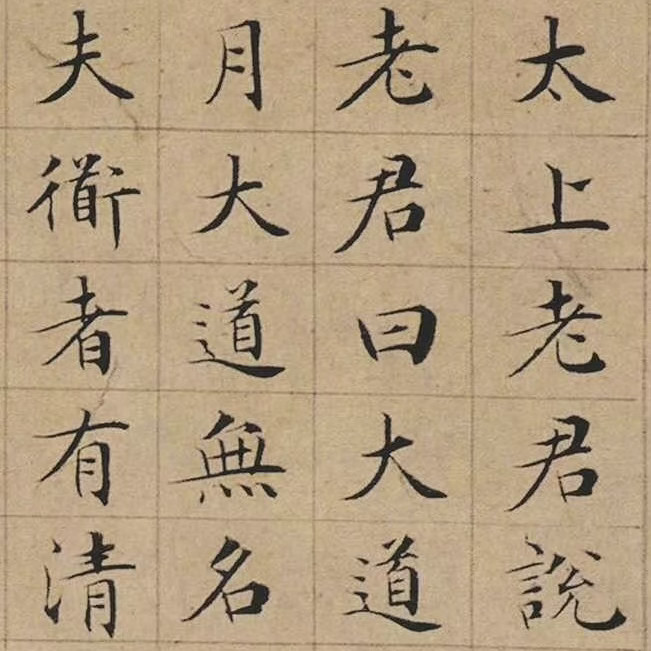 太上老君說
老君曰大道
月大道無名
夫衜者有清